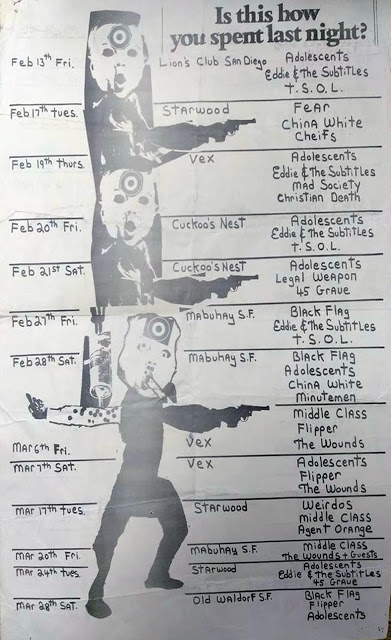 Is this how
you spent last night?
Feb 13th Fri. Lion's Club San Diego Adolescents
Eddie & the Subtitles
T.S.O.L.
Feb 17th Tues. Starwood Fear
China White
Cheifs
Feb 19th Thurs. Vex Adolescents
Eddie & The Subtitles
Mad Society
Christian Death
Feb 20th Fri. Cuckoo's Nest Adolescents
Eddie & the Subtitles
T.S.O.L.
Feb 21st Sat. Cuckoo's Nest Adolescents
Legal Weapon
45 Grave
Feb 27th Fri. Mabuhay S.F. Black Flag
Eddie & the Subtitles
T.S.O.L.
Feb 28th Sat. Mabuhay S.F. Black Flag
Adolescents
China White
Minutemen
Mar 6th Fri. Vex Middle Class
Flipper
The Wounds
Mar 7th Sat. Vex Adolescents
Flipper
The Wounds
Mar 17th Tues. Starwood Weirdos
Middle Class
Agent Orange
Mar 20th Fri. Mabuhay S.F. Middle Class
The Wounds + Guests
Mar 24th Tues. Starwood Adolescents
Eddie & the Subtitles
45 Grave
Mar 28th Sat. Old Waldorf S.F. Black Flag
Flipper
Adolescents